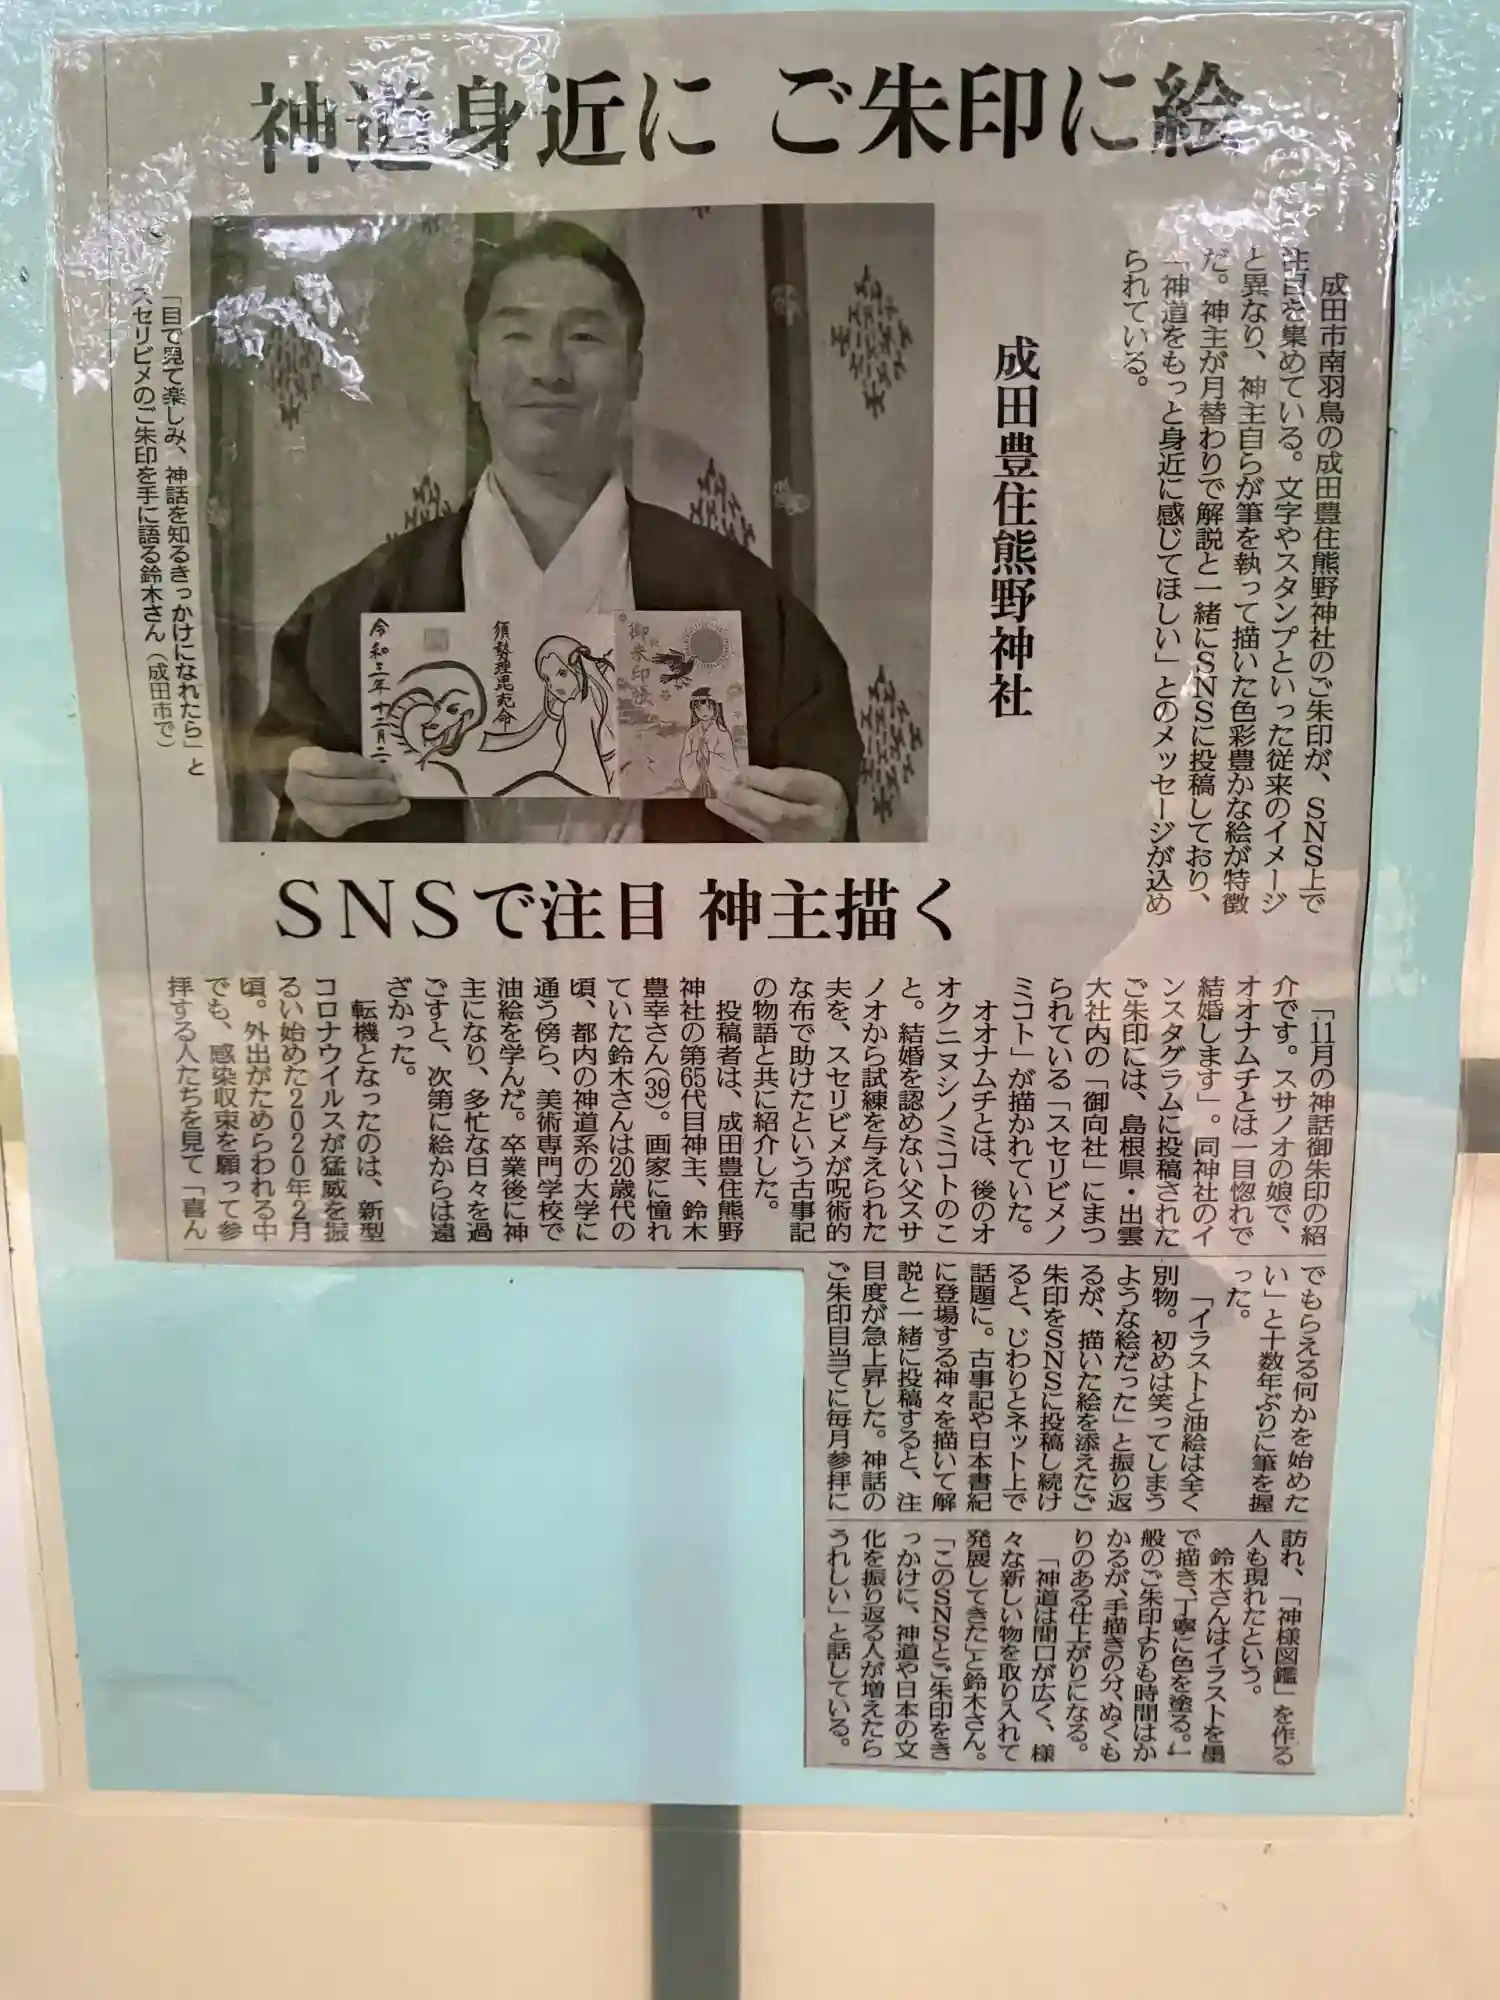 神道身近に ご朱印に絵
成田豊住熊野神社
SNSで注目 神主描く
成田市南羽鳥の成田豊住熊野神社のご朱印が、SNS上で
注目を集めている。文字やスタンプといった従来のイメージ
と異なり、神主自らが筆を執って描いた色彩豊かな絵が特徴
だ。神主が月替わりで解説と一緒にSNSに投稿しており、
「神道をもっと身近に感じてほしい」とのメッセージが込め
られている。
令和三年十二月二
須勢理毘売命
御朱印帳
「目で見て楽しみ、神話を知るきっかけになれたら」と
スセリビメのご朱印を手に語る鈴木さん（成田市で）
「11月の神話御朱印の紹
介です。スサノオの娘で、
オオナムチとは一目惚れで
結婚します」。同神社のイ
ンスタグラムに投稿された
ご朱印には、島根県・出雲
大社内の「御向社」にまつ
られている「スセリビメノ
ミコト」が描かれていた。
オオナムチとは、後のオ
オクニヌシノミコトのこ
と。結婚を認めない父スサ
ノオから試練を与えられた
夫を、スセリビメが呪術的
な布で助けたという古事記
の物語と共に紹介した。
投稿者は、成田豊住熊野
神社の第65代目神主、鈴木
豊幸さん(39)。画家に憧れ
ていた鈴木さんは20歳代の
頃、都内の神道系の大学に
通う傍ら、美術専門学校で
油絵を学んだ。卒業後に神
主になり、多忙な日々を過
ごすと、次第に絵からは遠
ざかった。
転機となったのは、新型
コロナウイルスが猛威を振
るい始めた2020年2月
頃。外出がためらわれる中
でも、感染収束を願って参
拝する人たちを見て「喜ん
でもらえる何かを始めた
い」と十数年ぶりに筆を握
った。
「イラストと油絵は全く
別物。初めは笑ってしまう
ような絵だった」と振り返
るが、描いた絵を添えたご
朱印をSNSに投稿し続け
ると、じわりとネット上で
話題に。古事記や日本書紀
に登場する神々を描いて解
説と一緒に投稿すると、注
目度が急上昇した。神話の
ご朱印目当てに毎月参拝に
訪れ、「神様図鑑」を作る
人も現れたという。
鈴木さんはイラストを墨
で描き、丁寧に色を塗る。一
般のご朱印よりも時間はか
かるが、手描きの分、ぬくも
りのある仕上がりになる。
「神道は間口が広く、様
々な新しい物を取り入れて
発展してきた」と鈴木さん。
「このSNSとご朱印をき
っかけに、神道や日本の文
化を振り返る人が増えたら
うれしい」と話している。